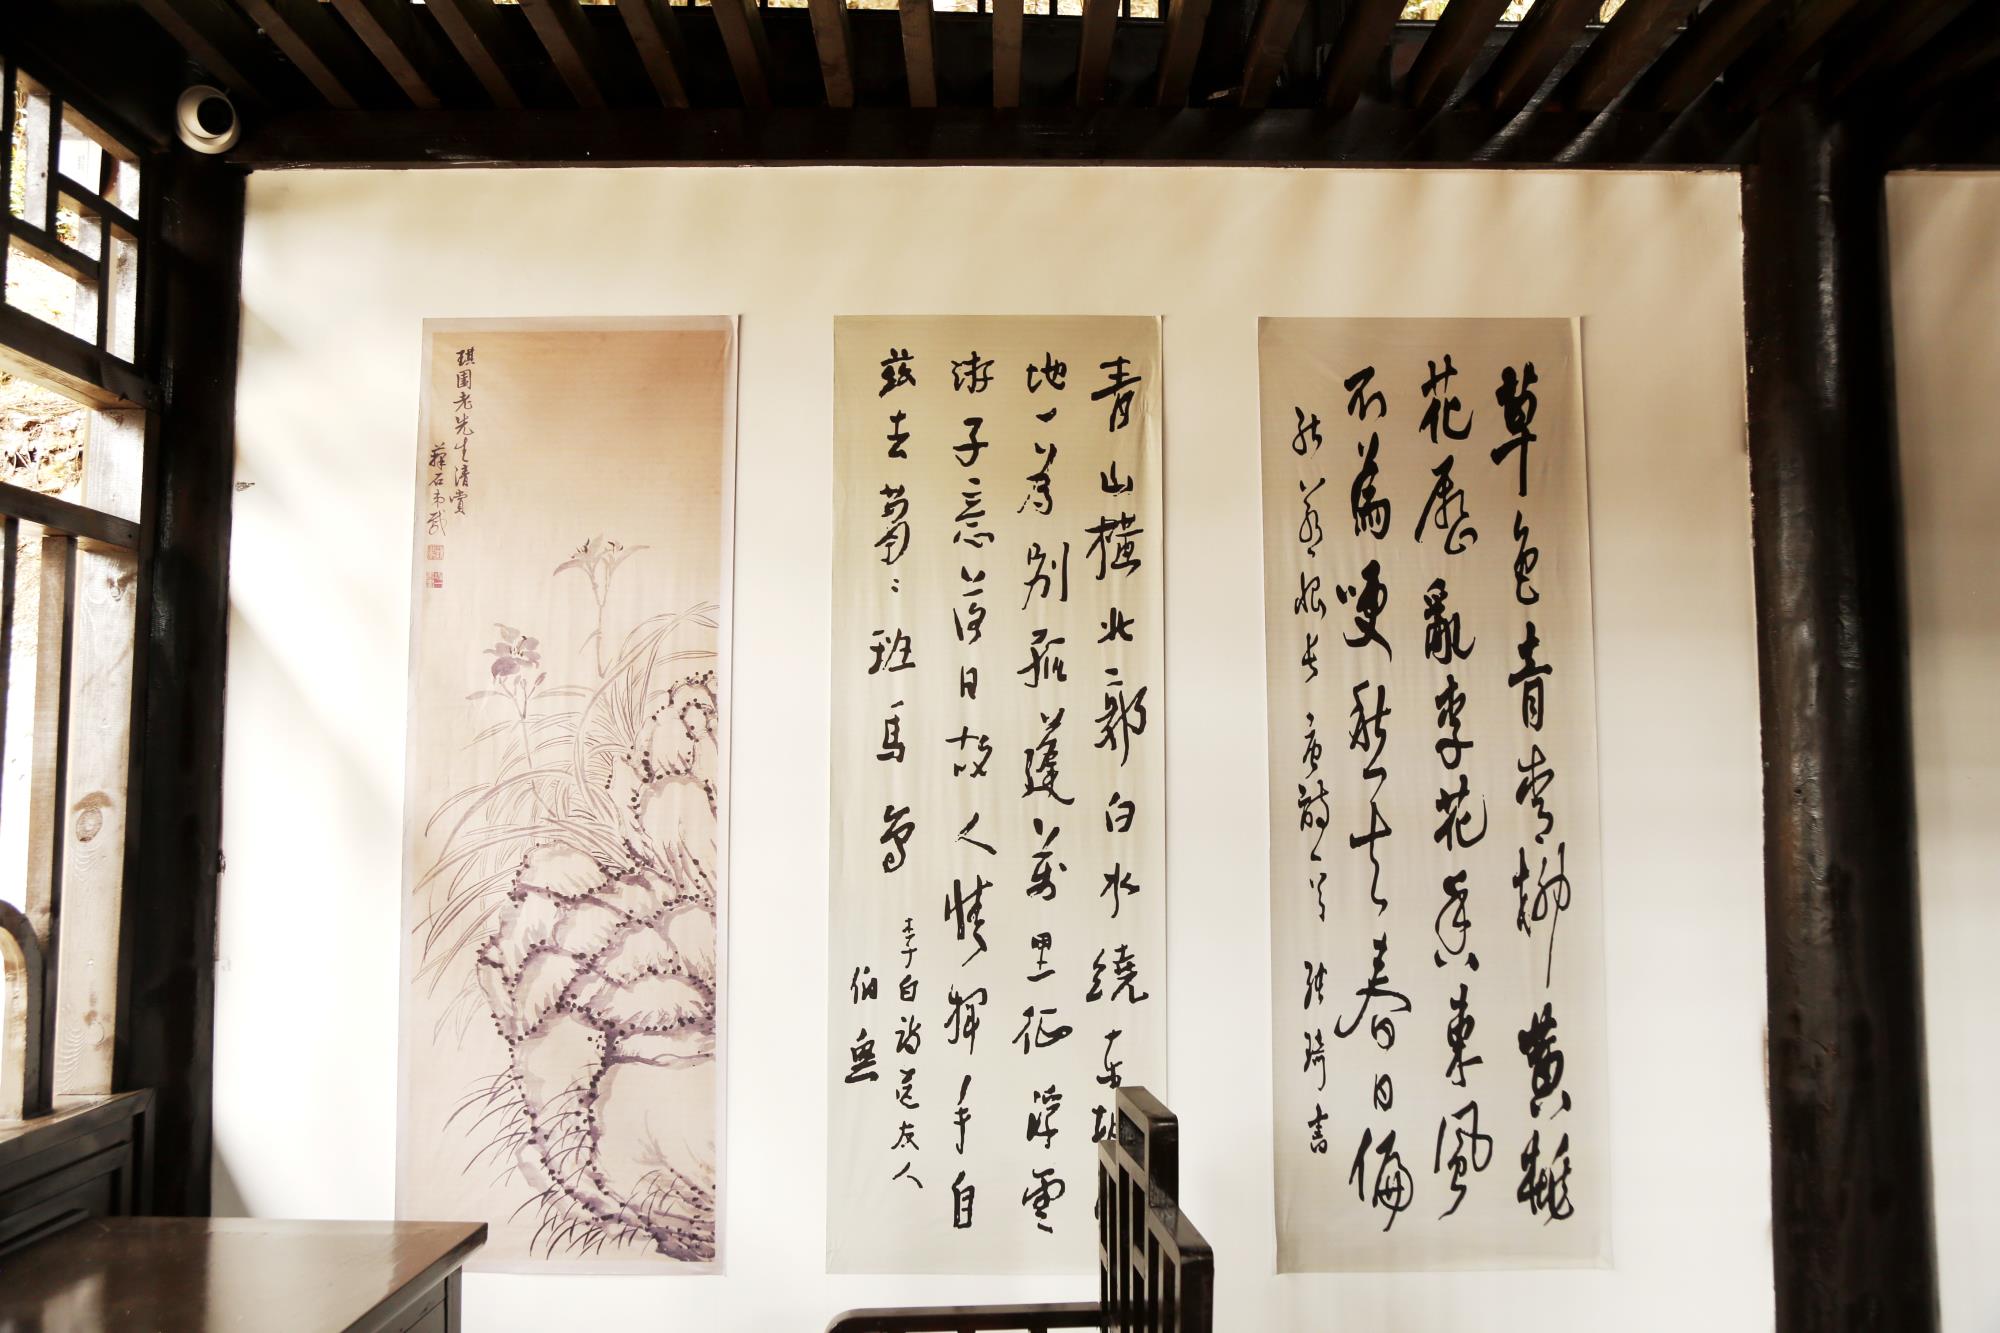 草色青青柳黃桃
花歷亂李花香東風
不為吹愁去春日偏
能惹恨長 唐詩一首 張琦書
青山橫北郭白水繞東城
地一為別孤蓬萬里征浮雲
游子意落日故人情揮手自
茲去蕭〻班馬鳴
李白詩送友人
琪園老先生清賞
蘀石弟載